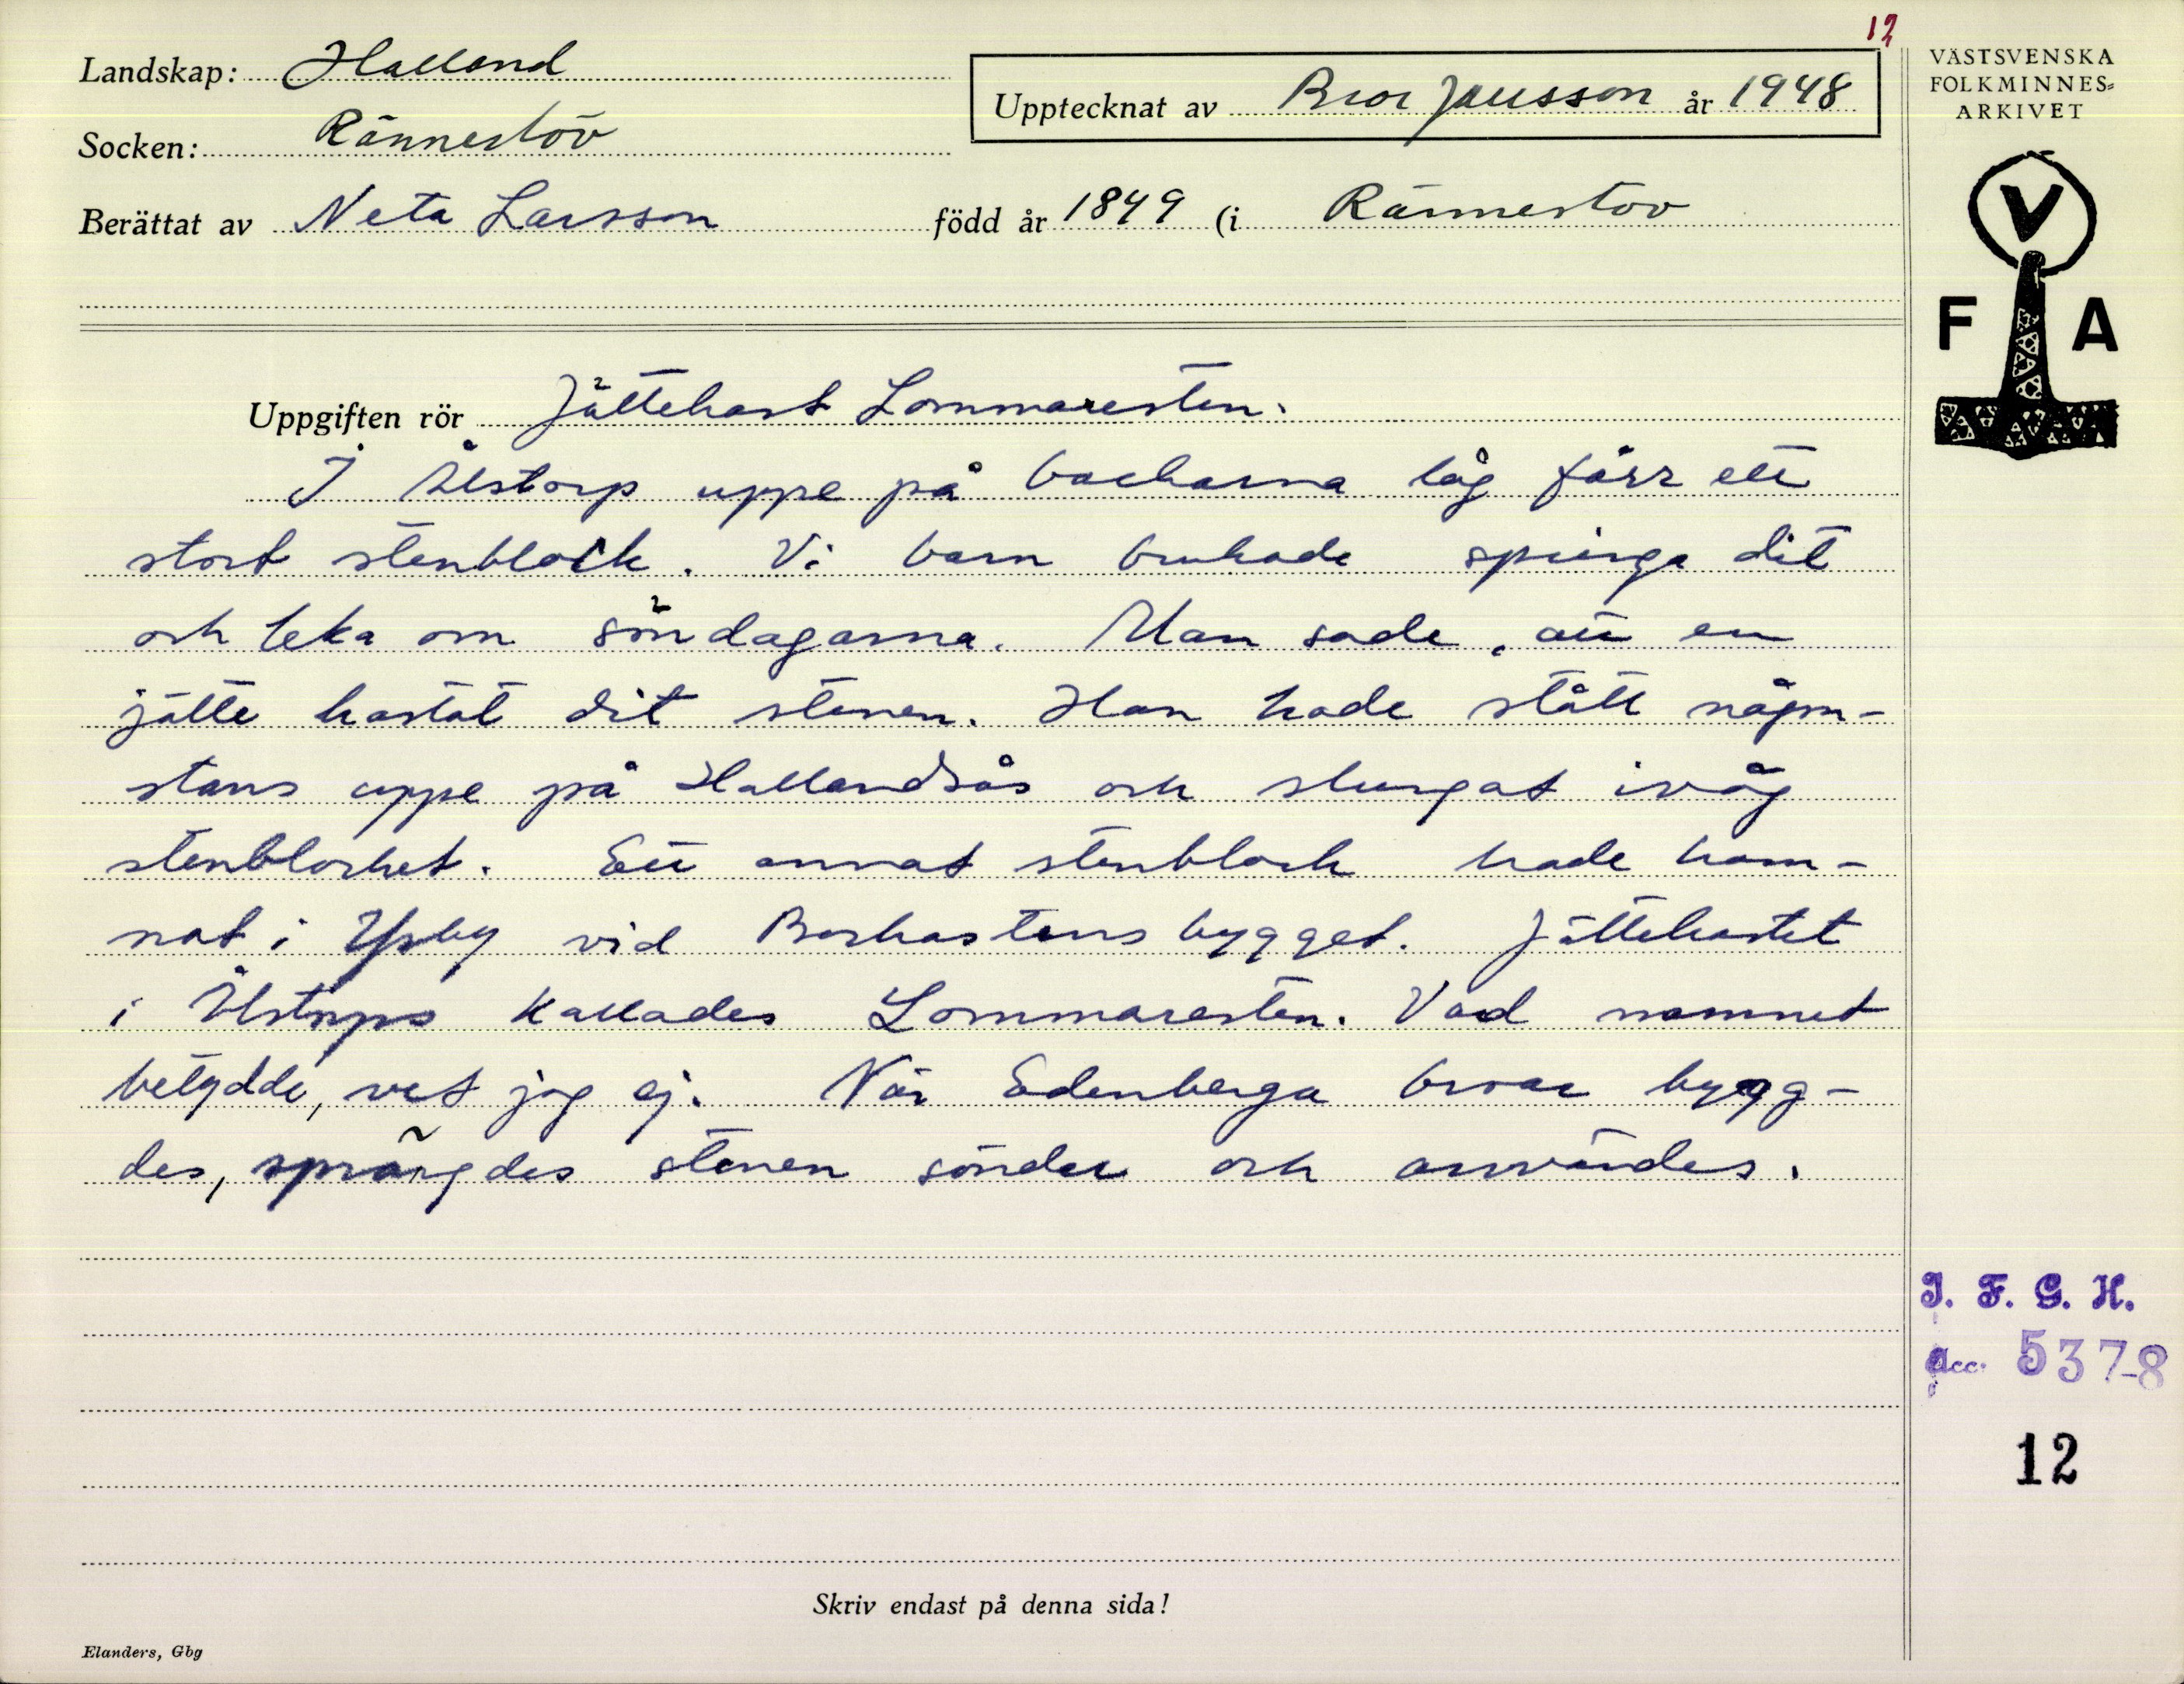 12
Landskap: Halland
Upptecknat av Bror Jansson år 1948
Socken: Ränneslöv
Berättat av Neta Larsson född år 1849 (i Ränneslöv
VÄSTSVENSKA
FOLKMINNES=
ARKIVET
V
F A
Uppgiften rör Jättekast Lommaresten.
I Ålstorp uppe på backarna låg förr ett
stort stenblock. Vi barn brukade springa dit
och leka om söndagarna. Man sade, att en
jätte kastat dit stenen. Han hade stått någon-
stans uppe på Hallandsås och slungat iväg
stenblocket. Ett annat stenblock hade ham-
nat i Ysby vid Bockastensbygget. Jättekastet
i Ålstorps kallades Lommaresten. Vad namnet
betydde, vet jag ej. När Edenberga broar bygg-
des, sprängdes stenen sönder och användes.
I. F. G. H.
Acc. 5378
12
Skriv endast på denna sida!
Elanders, Gbg